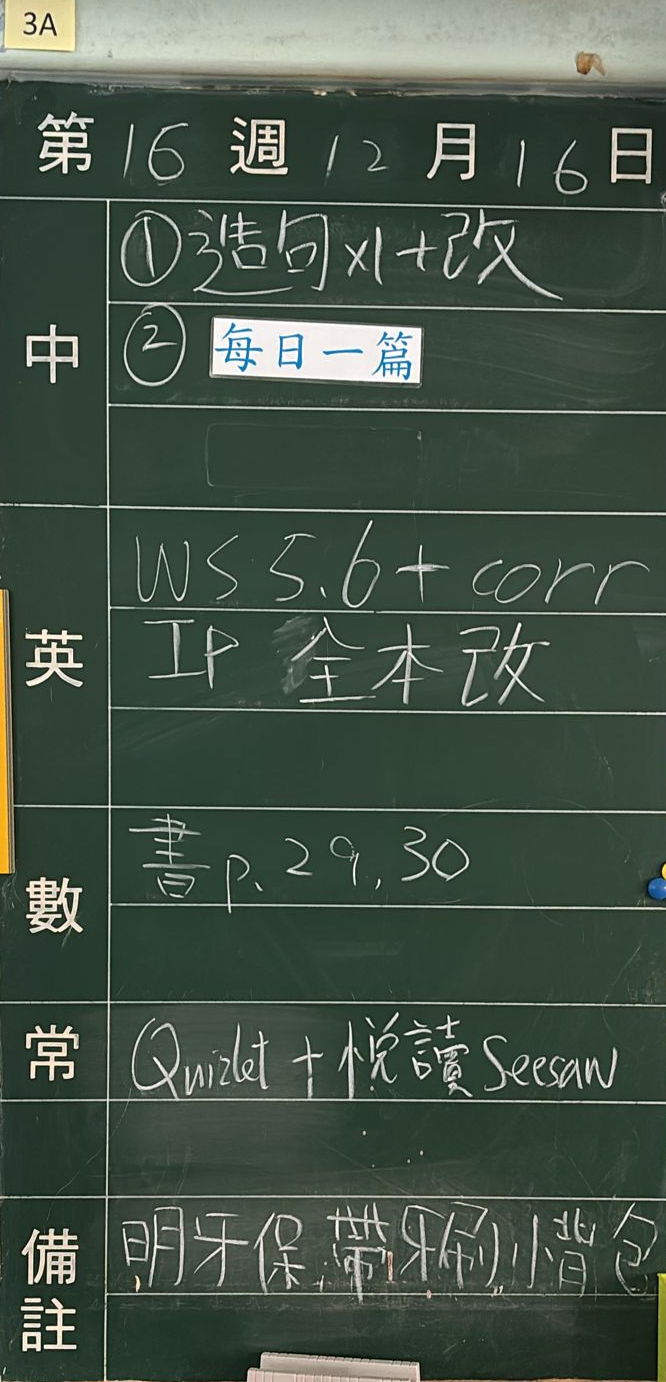 3A
第 16 週 12 月 16 日
中
①造句x1+改
② 每日一篇
英
WS 5.6 + corr
IP 全本改
數
書p.29,30
常
Quizlet + 悅讀 Seesaw
備註
明牙保,帶牙刷,小背包